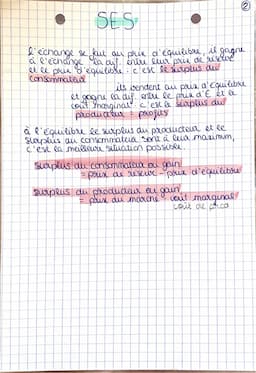 ②
SES
L'échange se fait au prix d'équilibre, il gagne
à l'échange la dif. entre leur prix de réserve
et le prix d'équilibre : c'est le surplus du
consommateur
ils vendent au prix d'équilibre
et gagne la dif. entre le prix d'É et le
coût marginal : c'est le surplus du
producteur = profits
à l'équilibre le surplus du producteur et le
surplus du consommateur sont à leur maximum,
c'est la meilleure situation possible.
surplus du consommateur ou gain
= prix de réserve - prix d'équilibre
surplus du producteur ou gain
= prix du marché - coût marginal
coût de